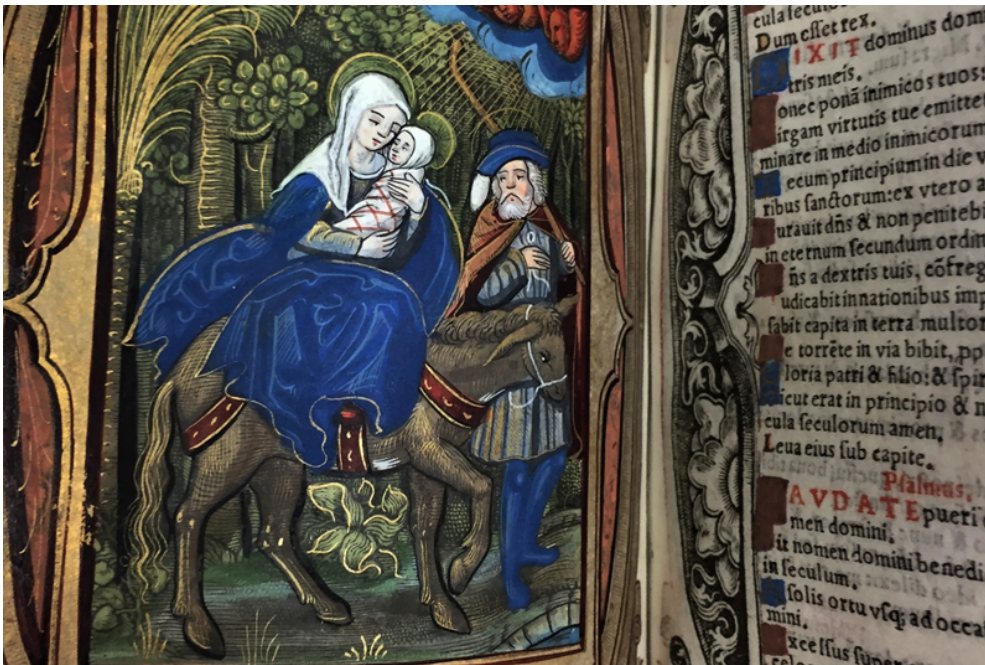 cula seculo
Dum esset rex.
IXIT dominus dom
tris meis.
onec ponā inimicos tuos:
irgam virtutis tue emittet
minare in medio inimicorum
ecum principium in die v
ribus sanctorum: ex vtero a
urauit dñs & non penitebi
in eternum secundum ordin
ñs a dextris tuis, cōfreg
udicabit in nationibus imp
sabit capita in terra multor
e torrēte in via bibit, pp
loria patri & filio: & spir
icut erat in principio & n
cula seculorum amen.
Leua eius sub capite.
Psalmus.
AVDATE pueri
men domini.
it nomen domini benedi
in seculum.
solis ortu vsq; ad occa
mini.
xcelsus super